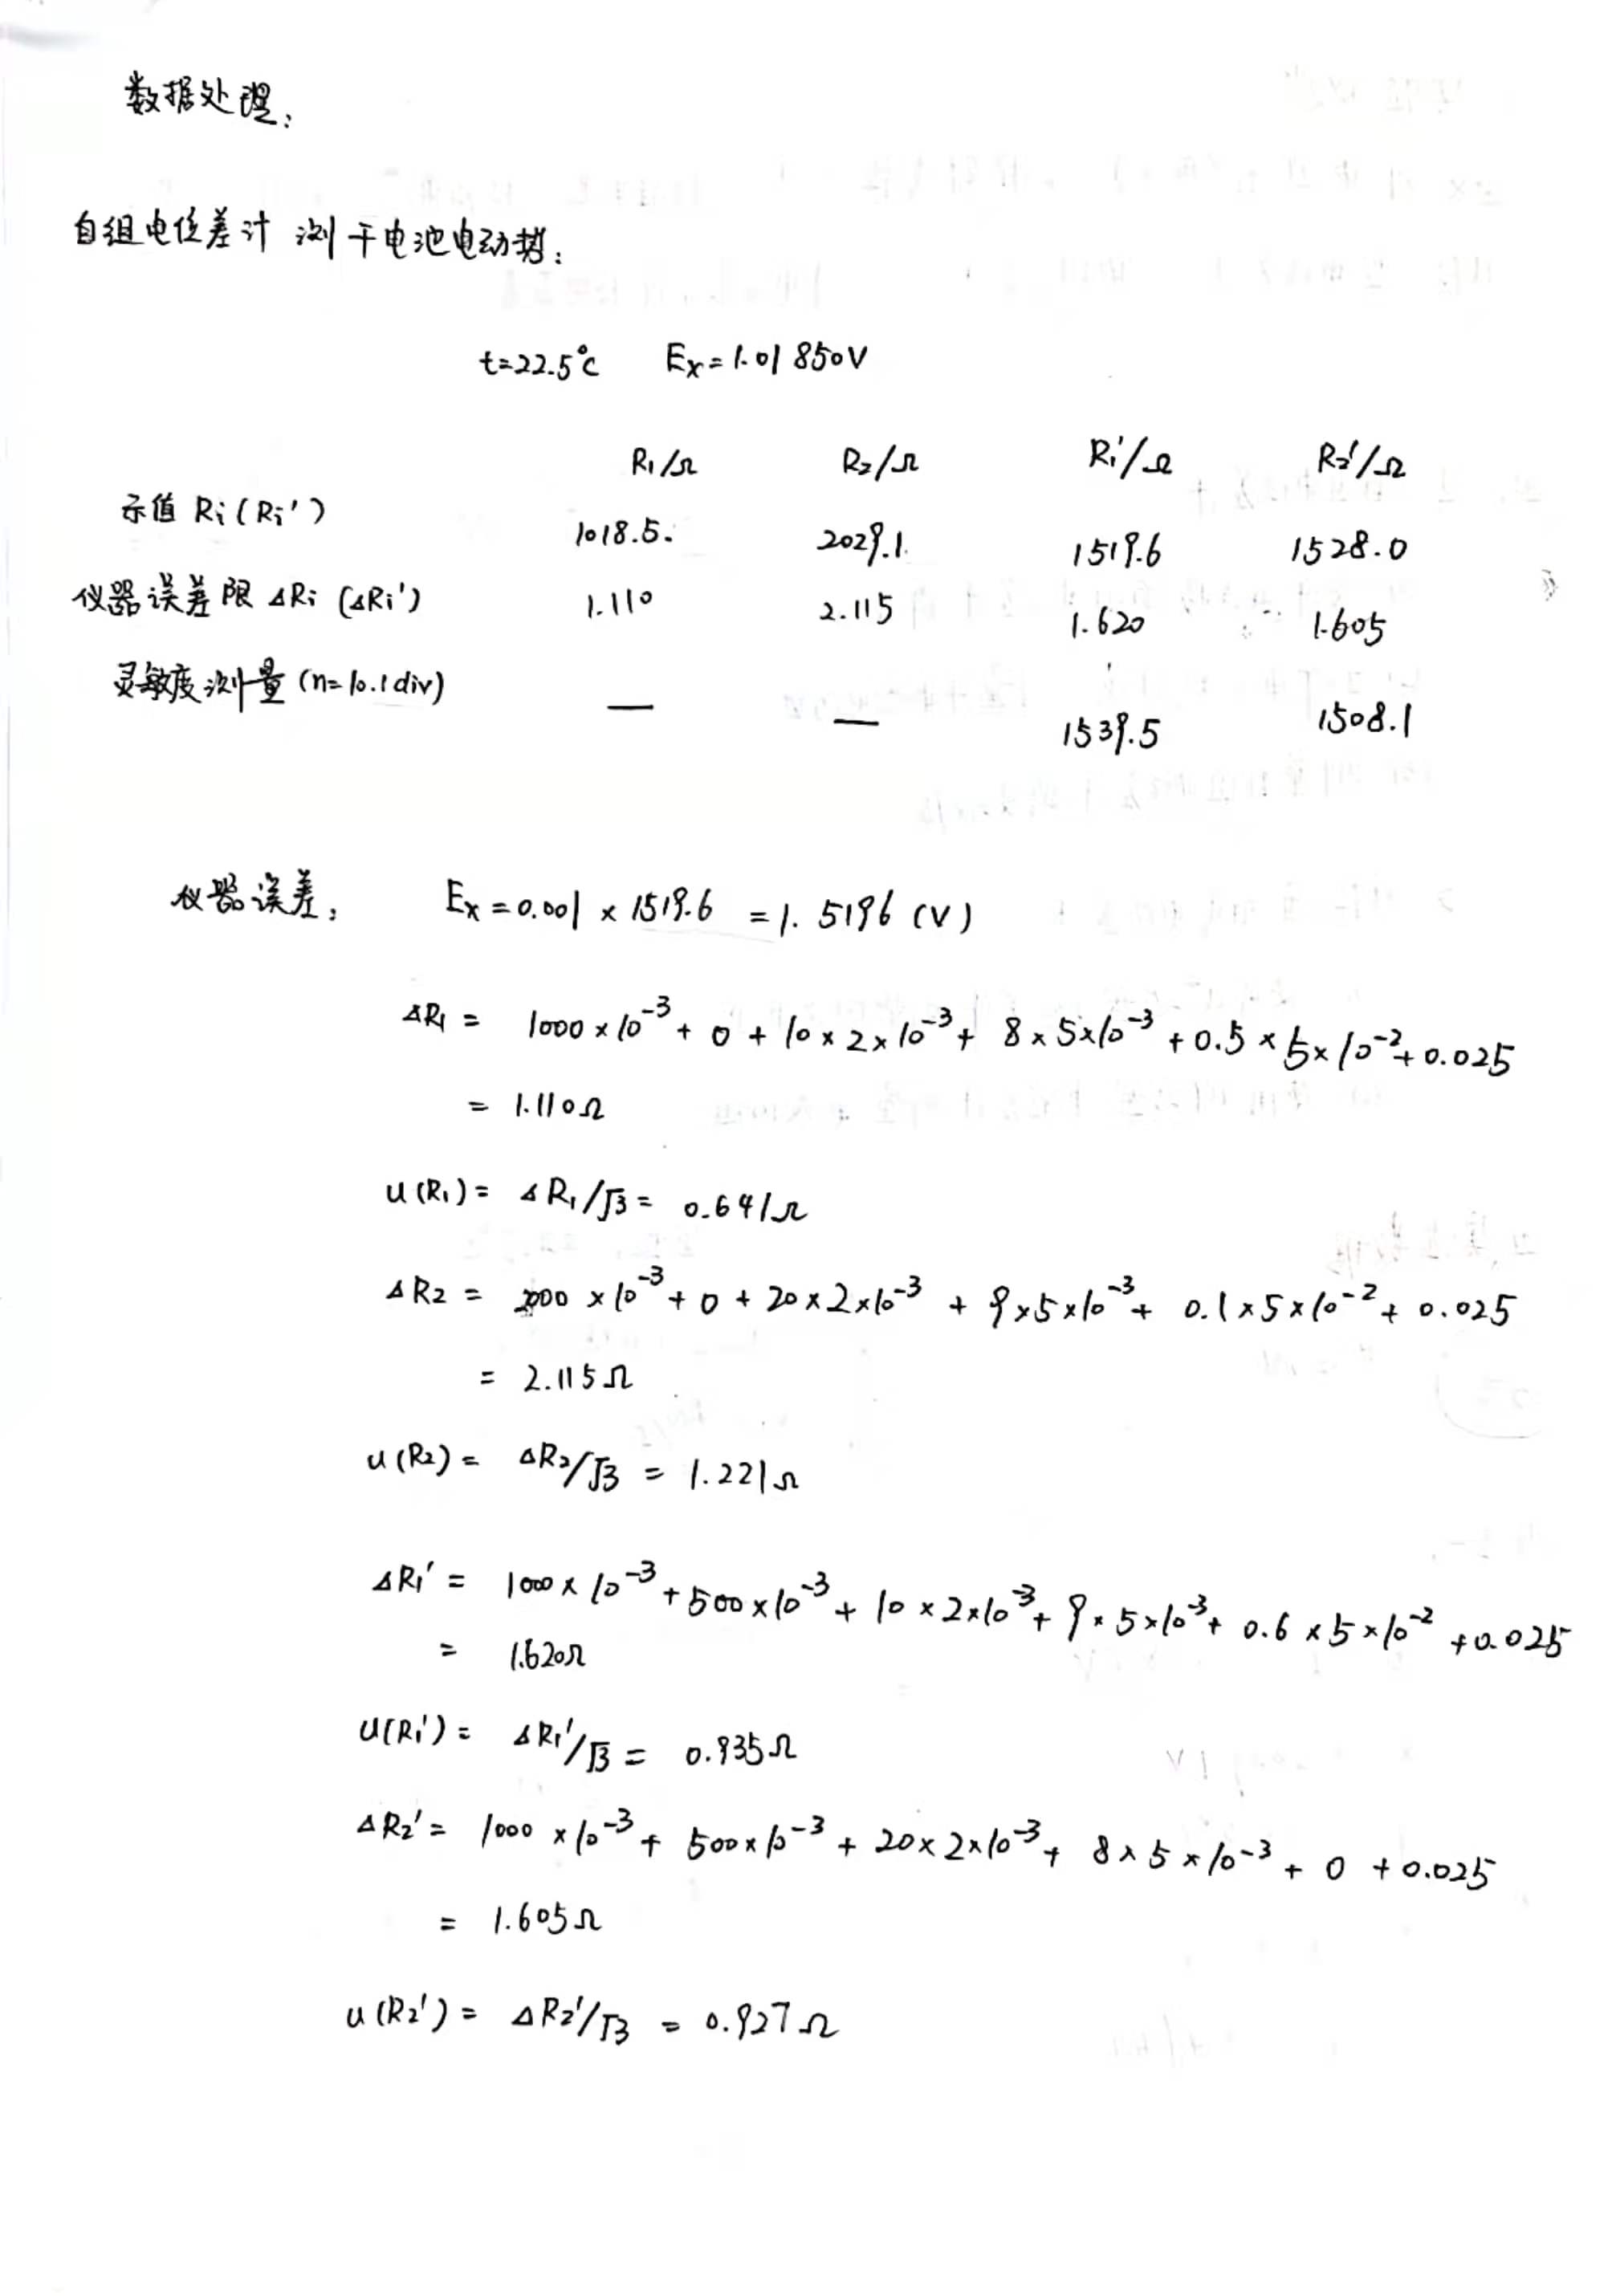 数据处理:
自组电位差计 测干电池电动势:
t=22.5°C Ex=1.01850V
R₁/Ω R₂/Ω R₁'/Ω R₂'/Ω
示值 Ri(Ri') 1018.5. 2029.1 1519.6 1528.0
仪器误差限 ΔRi (ΔRi') 1.110 2.115 1.620 1.605
灵敏度测量(n=10.1div) — — 1539.5 1508.1
仪器误差: Ex=0.001×1519.6=1.5196(V)
ΔR₁= 1000×10⁻³+0+10×2×10⁻³+8×5×10⁻³+0.5×5×10⁻²+0.025
= 1.110Ω
u(R₁)= ΔR₁/√3= 0.641Ω
ΔR₂= 2000×10⁻³+0+20×2×10⁻³+9×5×10⁻³+0.1×5×10⁻²+0.025
= 2.115Ω
u(R₂)= ΔR₂/√3=1.221Ω
ΔR₁'= 1000×10⁻³+500×10⁻³+10×2×10⁻³+9×5×10⁻³+0.6×5×10⁻²+0.025
= 1.620Ω
u(R₁')= ΔR₁'/√3= 0.935Ω
ΔR₂'= 1000×10⁻³+500×10⁻³+20×2×10⁻³+8×5×10⁻³+0+0.025
= 1.605Ω
u(R₂')= ΔR₂'/√3=0.927Ω